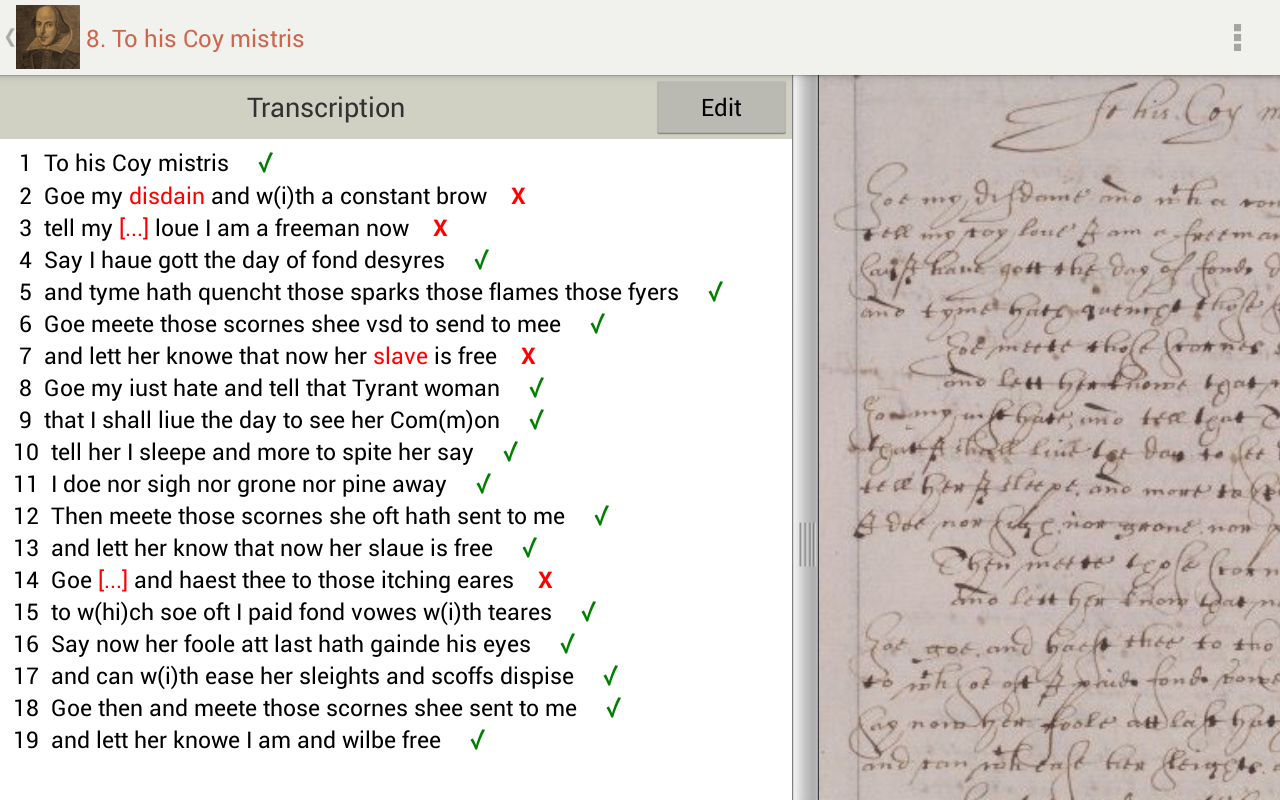 8. To his Coy mistris
Transcription
Edit
1 To his Coy mistris √
2 Goe my disdain and w(i)th a constant brow X
3 tell my [...] loue I am a freeman now X
4 Say I haue gott the day of fond desyres √
5 and tyme hath quencht those sparks those flames those fyers √
6 Goe meete those scornes shee vsd to send to mee √
7 and lett her knowe that now her slave is free X
8 Goe my iust hate and tell that Tyrant woman √
9 that I shall liue the day to see her Com(m)on √
10 tell her I sleepe and more to spite her say √
11 I doe nor sigh nor grone nor pine away √
12 Then meete those scornes she oft hath sent to me √
13 and lett her know that now her slaue is free √
14 Goe [...] and haest thee to those itching eares X
15 to w(hi)ch soe oft I paid fond vowes w(i)th teares √
16 Say now her foole att last hath gainde his eyes √
17 and can w(i)th ease her sleights and scoffs dispise √
18 Goe then and meete those scornes shee sent to me √
19 and lett her knowe I am and wilbe free √
To his Coy
Goe my disdaine and wth a
tell my coy loue I am a freeman
Say I haue gott the day of fond
and tyme hath quencht those
Goe meete those scornes
and lett her knowe that
Goe my iust hate, and tell that
that I shall liue the day to see
tell her I sleepe, and more to
I doe nor sigh, nor grone, nor
Then meete those scorn
and lett her know that
Goe, goe, and haest thee to tho
to wch soe oft I paide fond vowe
Say now her foole att last hat
and can wth ease her sleights,